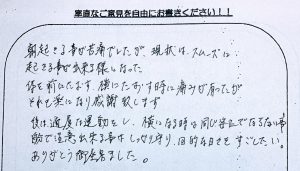 率直なご意見を自由にお書きください！！
朝起きる事が苦痛でしたが、現状は、スムーズに
起きる事が出来る様になった
体を前にたおす、横にたおす時に痛みが有ったが
それも楽になり感謝致します
後は適度な運動をし、横になる時も同じ姿正でなるない事
動で注意出来る事はしっかり守り、日的な日々をすごしたい。
ありがとう御座居ました。